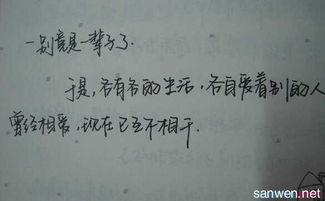 一别竟是一辈子了.
于是,各有各的生活,各自爱着别的人
曾经相爱,现在已互不相干.
sanwen.net